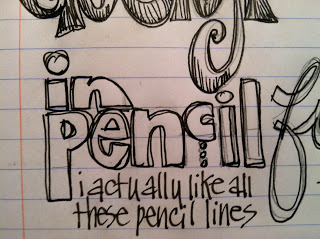 in
pencil
i actually like all
these pencil lines